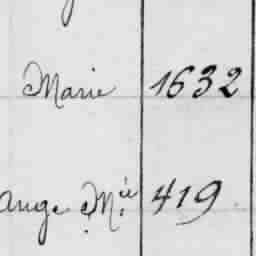 Marie 1632
ange Mie 419